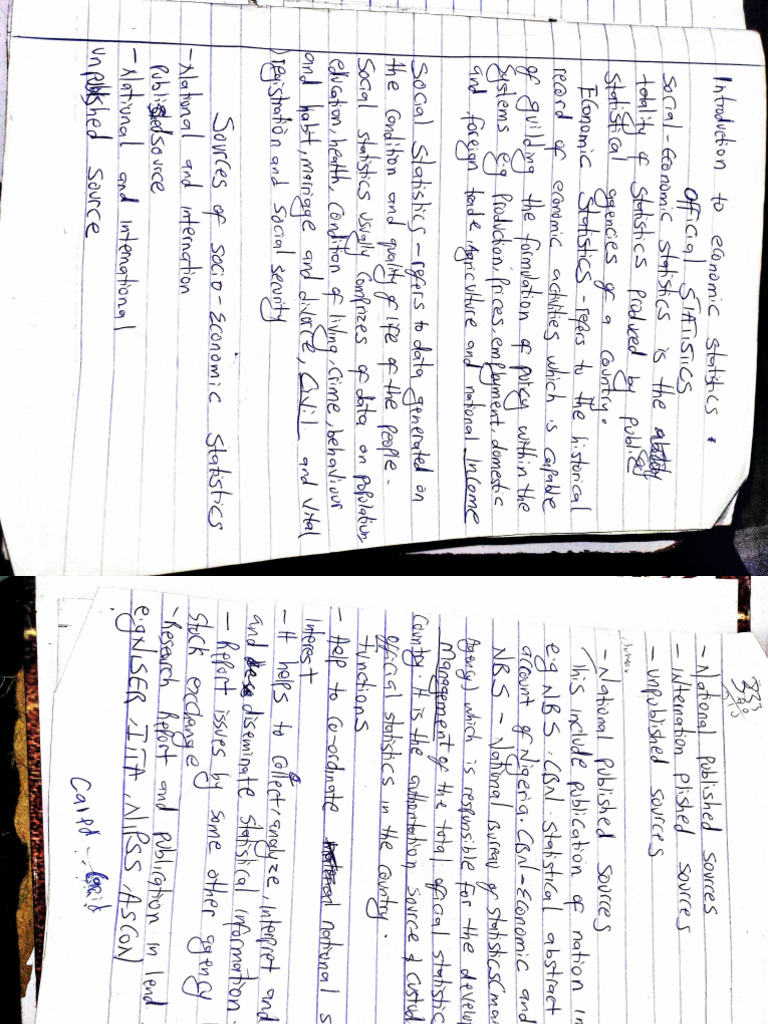 Introduction to economic statistics.
Official STATISTICS
Social-Economic statistics is the
totality of statistics produced by public
Statistical agencies of a country.
Economic Statistics - refers to the historical
record of economic activities which is capable
of guilding the formulation of policy within the
systems eg Production, prices, employment, domestic
and foreign trade Agriculture and national Income
Social Statistics - refers to data generated on
the condition and quality of life of the people.
Social statistics usually comprizes of data on population,
education, health, condition of living, crime, behaviour
and habit, marriage and divorce, Civil and Vital
registration and Social security
Sources of socio-Economic Statistics
- National and internation
published source
- National and International
unpublished source
- National published sources
- internation plished sources
- unpublished sources
- National published sources
This include publication of nation in
e.g NBS. CBN. Statistical abstract
account of Nigeria. CBN-Economic and
NBS - National bureau of statistics
Agency) which is responsible for the develop
Management of the total official statistic
Country. It is the authortation source & custod
official statistics in the country.
Functions
- Help to co-ordinate national s
Interest
- It helps to collect, analyze, interpret and
and diseminate statistical information.
- Report issues by some other agency
Stock exchange
- Research Report and publication in lend
e.g NISER, IITA, NIPSS, ASCON